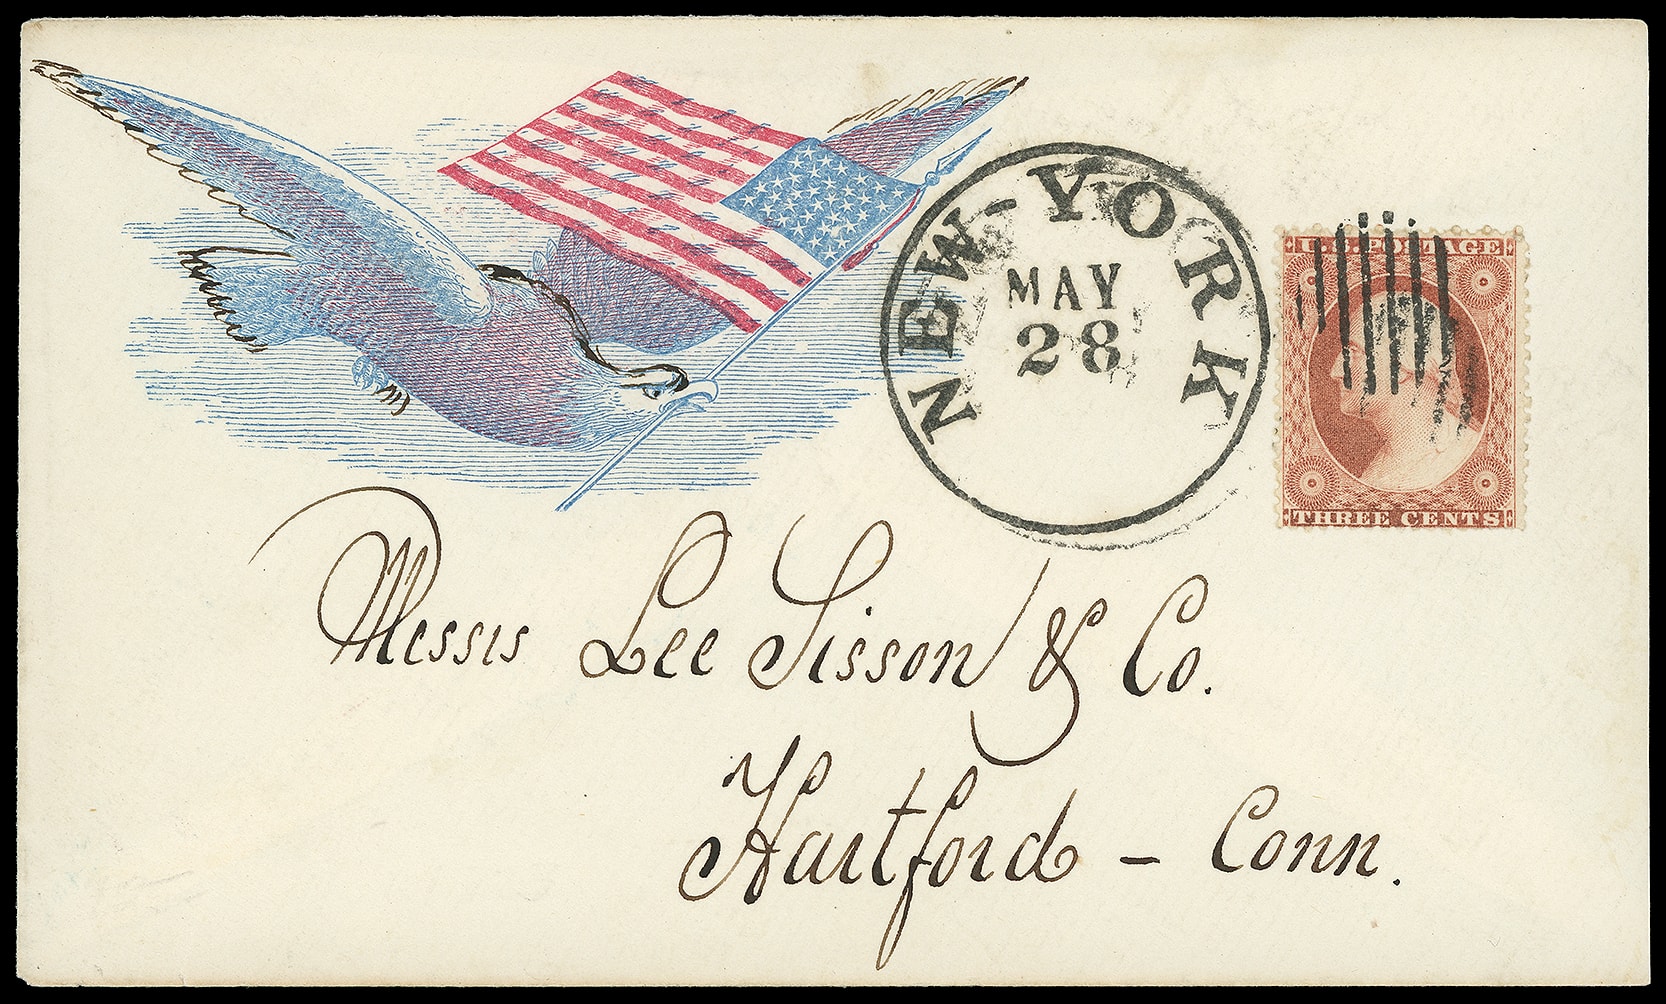 NEW-YORK
MAY
28
U.S. POSTAGE
THREE CENTS
Messrs Lee Sisson & Co.
Hartford - Conn.